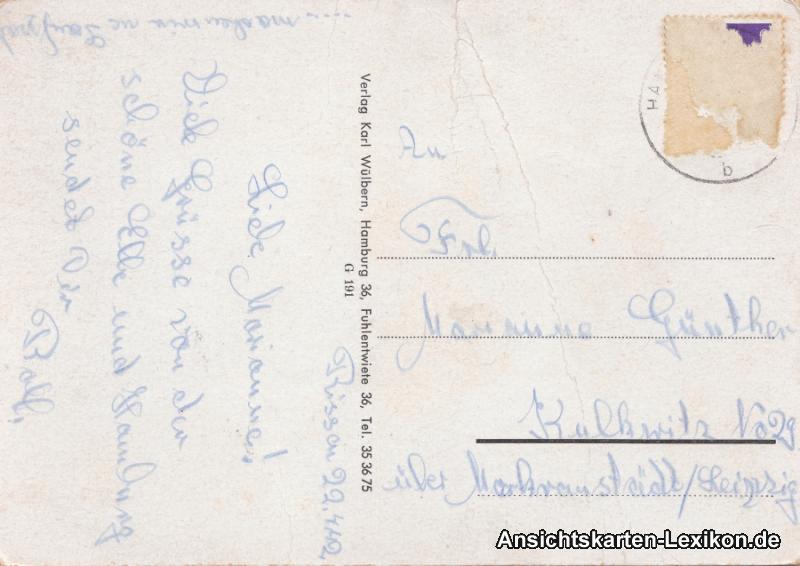 Rissen 22.4.42
Liebe Marianne!
Viele Grüsse von der
schöne Elbe und Hamburg
sendet Dir
Rolf.
.... machen wir ne
Verlag Karl Wülbern, Hamburg 36, Fuhlentwiete 36, Tel. 35 36 75
G 191
HA
b
An
Frl.
Marianne Günther
Kulkwitz No 29
über Markranstädt/Leipzig
Ansichtskarten-Lexikon.de